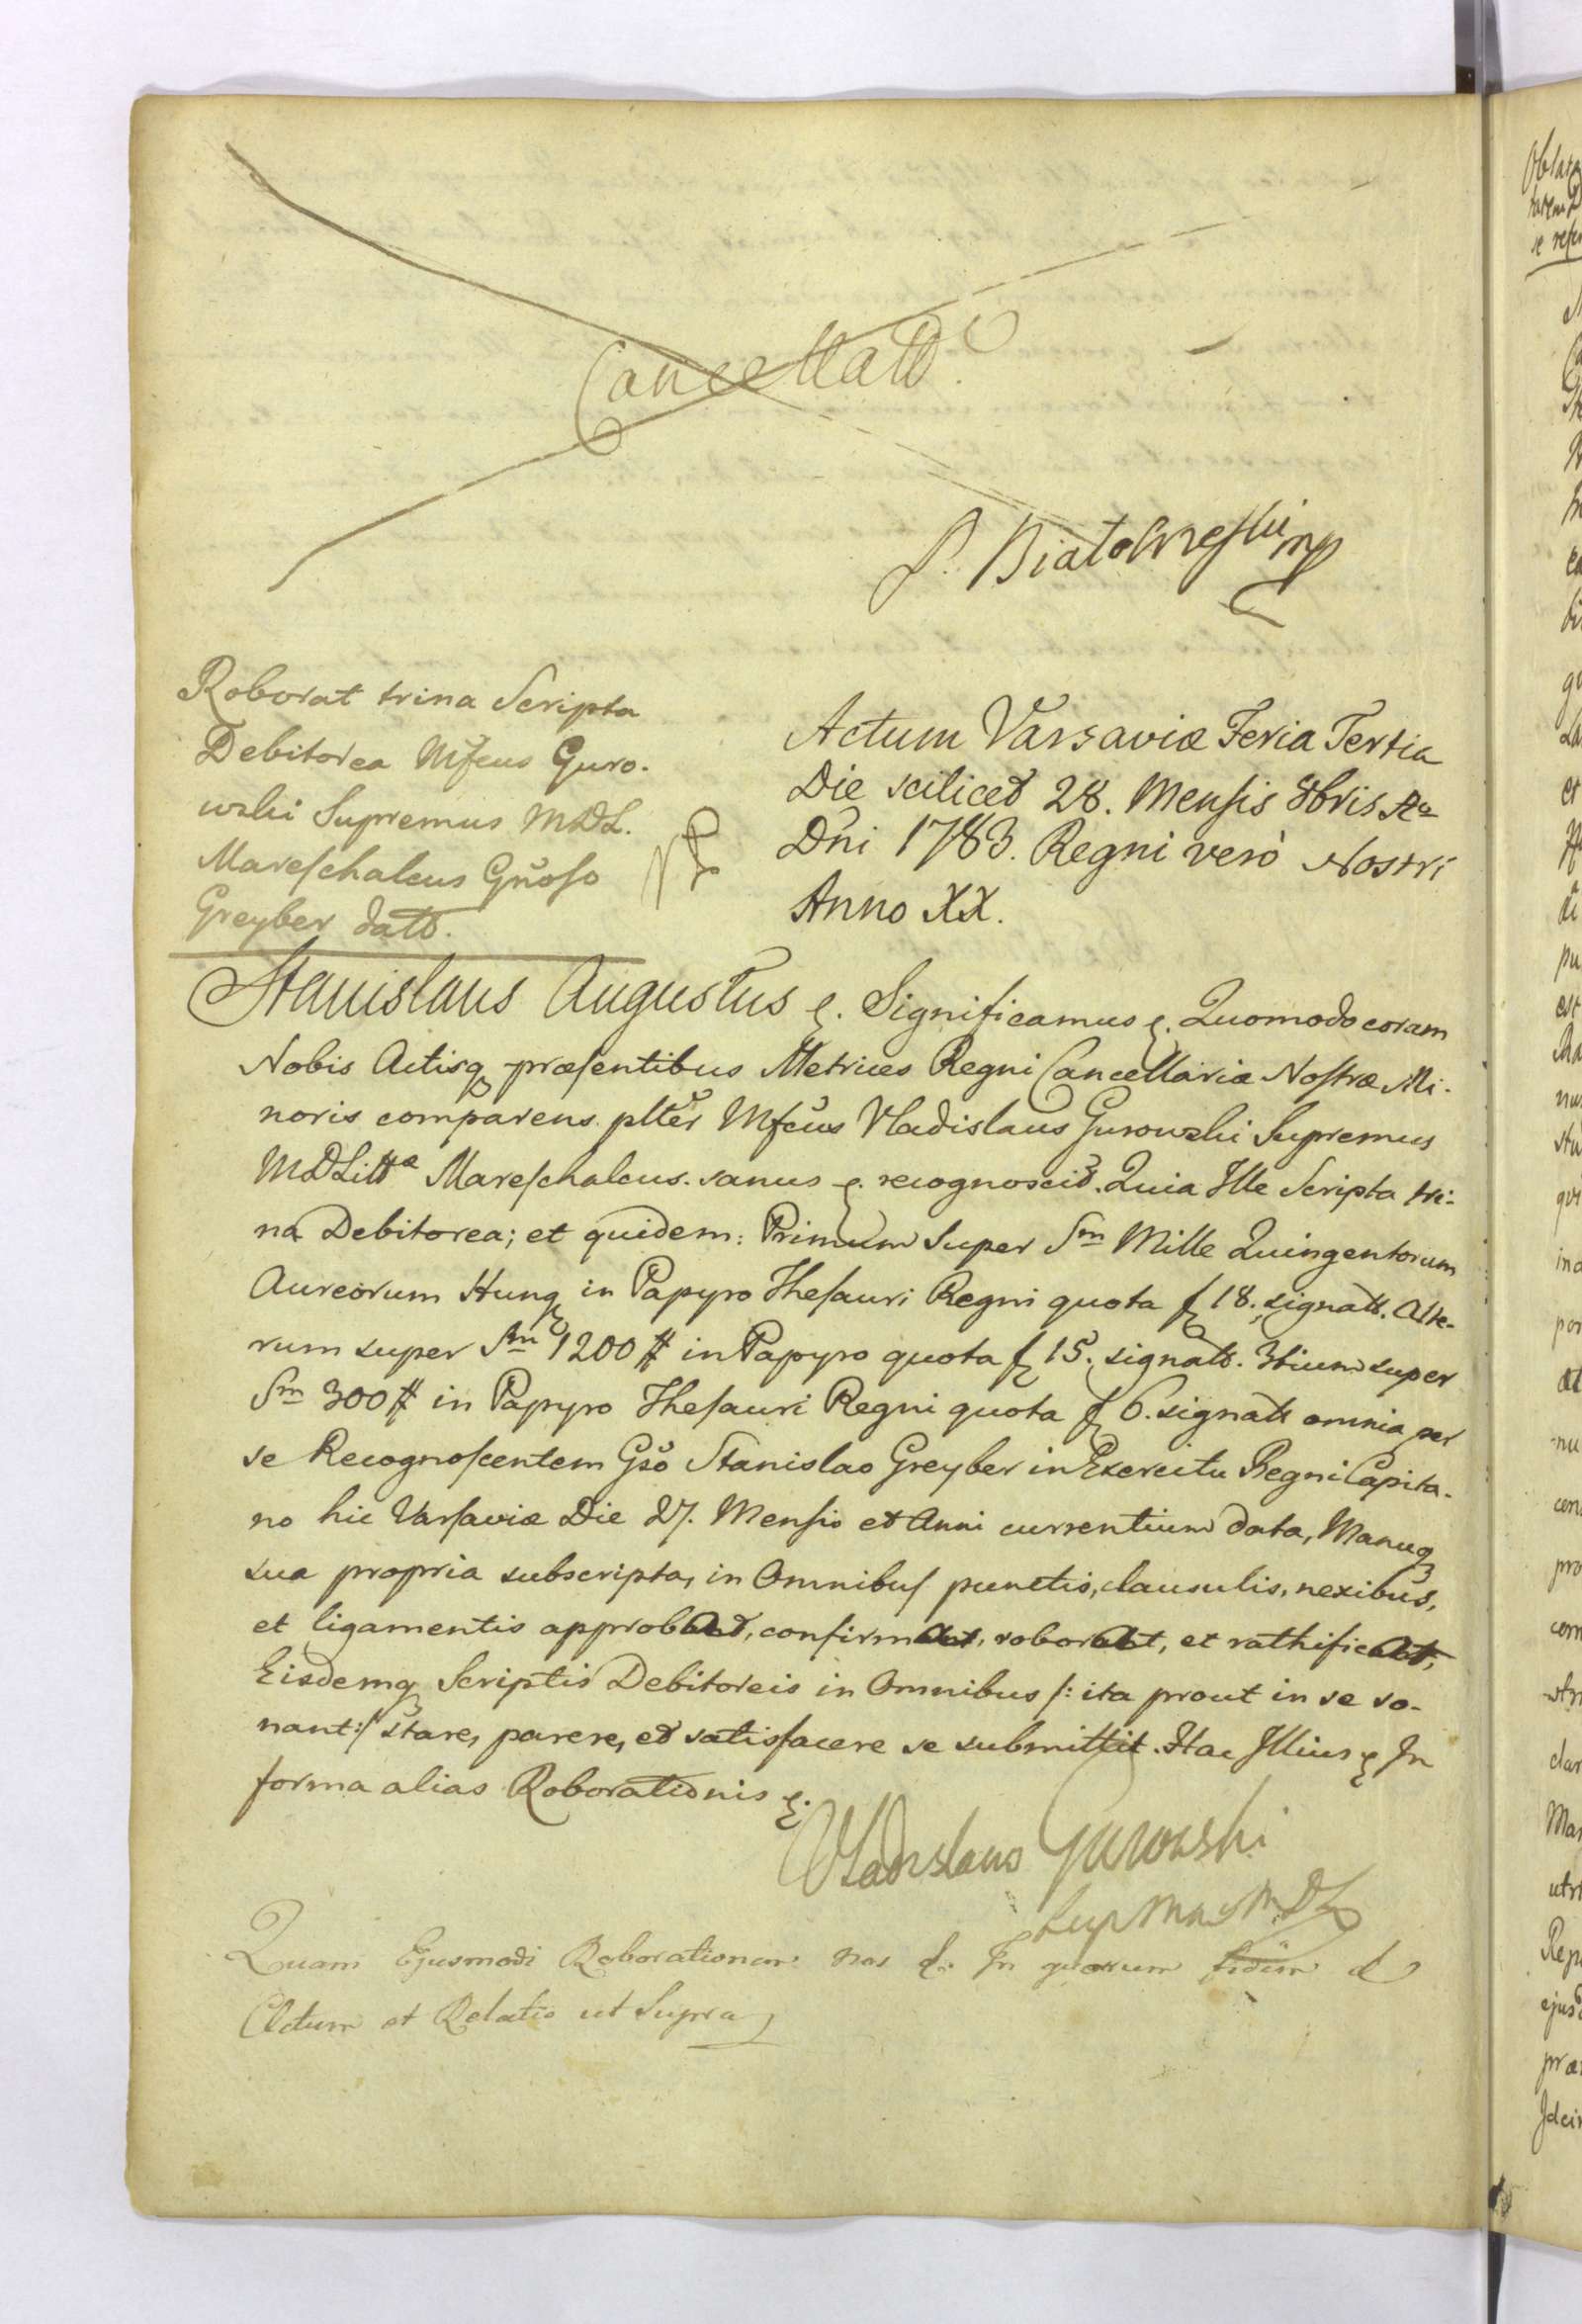 Cancellatt.
P. Białobrzeski mp
Roborat trina Scripta
Debitorea Mfcus Guro-
wski Supremus MDL.
Mareschalcus Gnoso
Greyber datt.
Actum Varsaviæ Feria Tertia
Die scilicet 28. Mensis 8bris Ao
Dni 1783. Regni verò Nostri
Anno XX.
Stanislaus Augustus &. Significamus &. Quomodo coram
Nobis Actisq præsentibus Metrices Regni Cancellariæ Nostræ Mi-
noris comparens plter Mfcus Vladislaus Gurowski Supremus
MDLittæ Mareschalcus. sanus &. recognoscit. Quia Ille Scripta tri-
na Debitorea; et quidem: Primum super Sm Mille Quingentorum
Aureorum Hung in Papyro Thesauri Regni quota f 18. signatt. Alte-
rum super Sm 1200 # in Papyro quota f 15. signatt. 3tium super
Sm 300 # in Papyro Thesauri Regni quota f 6. signatt omnia per
se Recognoscentem Gso Stanislao Greyber in Exercitu Regni Capita-
no hic Varsaviæ Die 27. Mensis et Anni currentium data, Manuq
sua propria subscripta, in Omnibus punctis, clausulis, nexibus,
et ligamentis approbat, confirmat, roborat, et rathificat,
Eisdemq Scriptis Debitoreis in Omnibus /: ita prout in se so-
nant :/ stare, parere, et satisfacere se submittit. Hac Illius & In
forma alias Roborationis &.
Vladislaus Gurowski
Sup Mar MDL
Quam Ejusmodi Roborationem nos &. In quorum fidem &
Actum et Relatio ut Supra